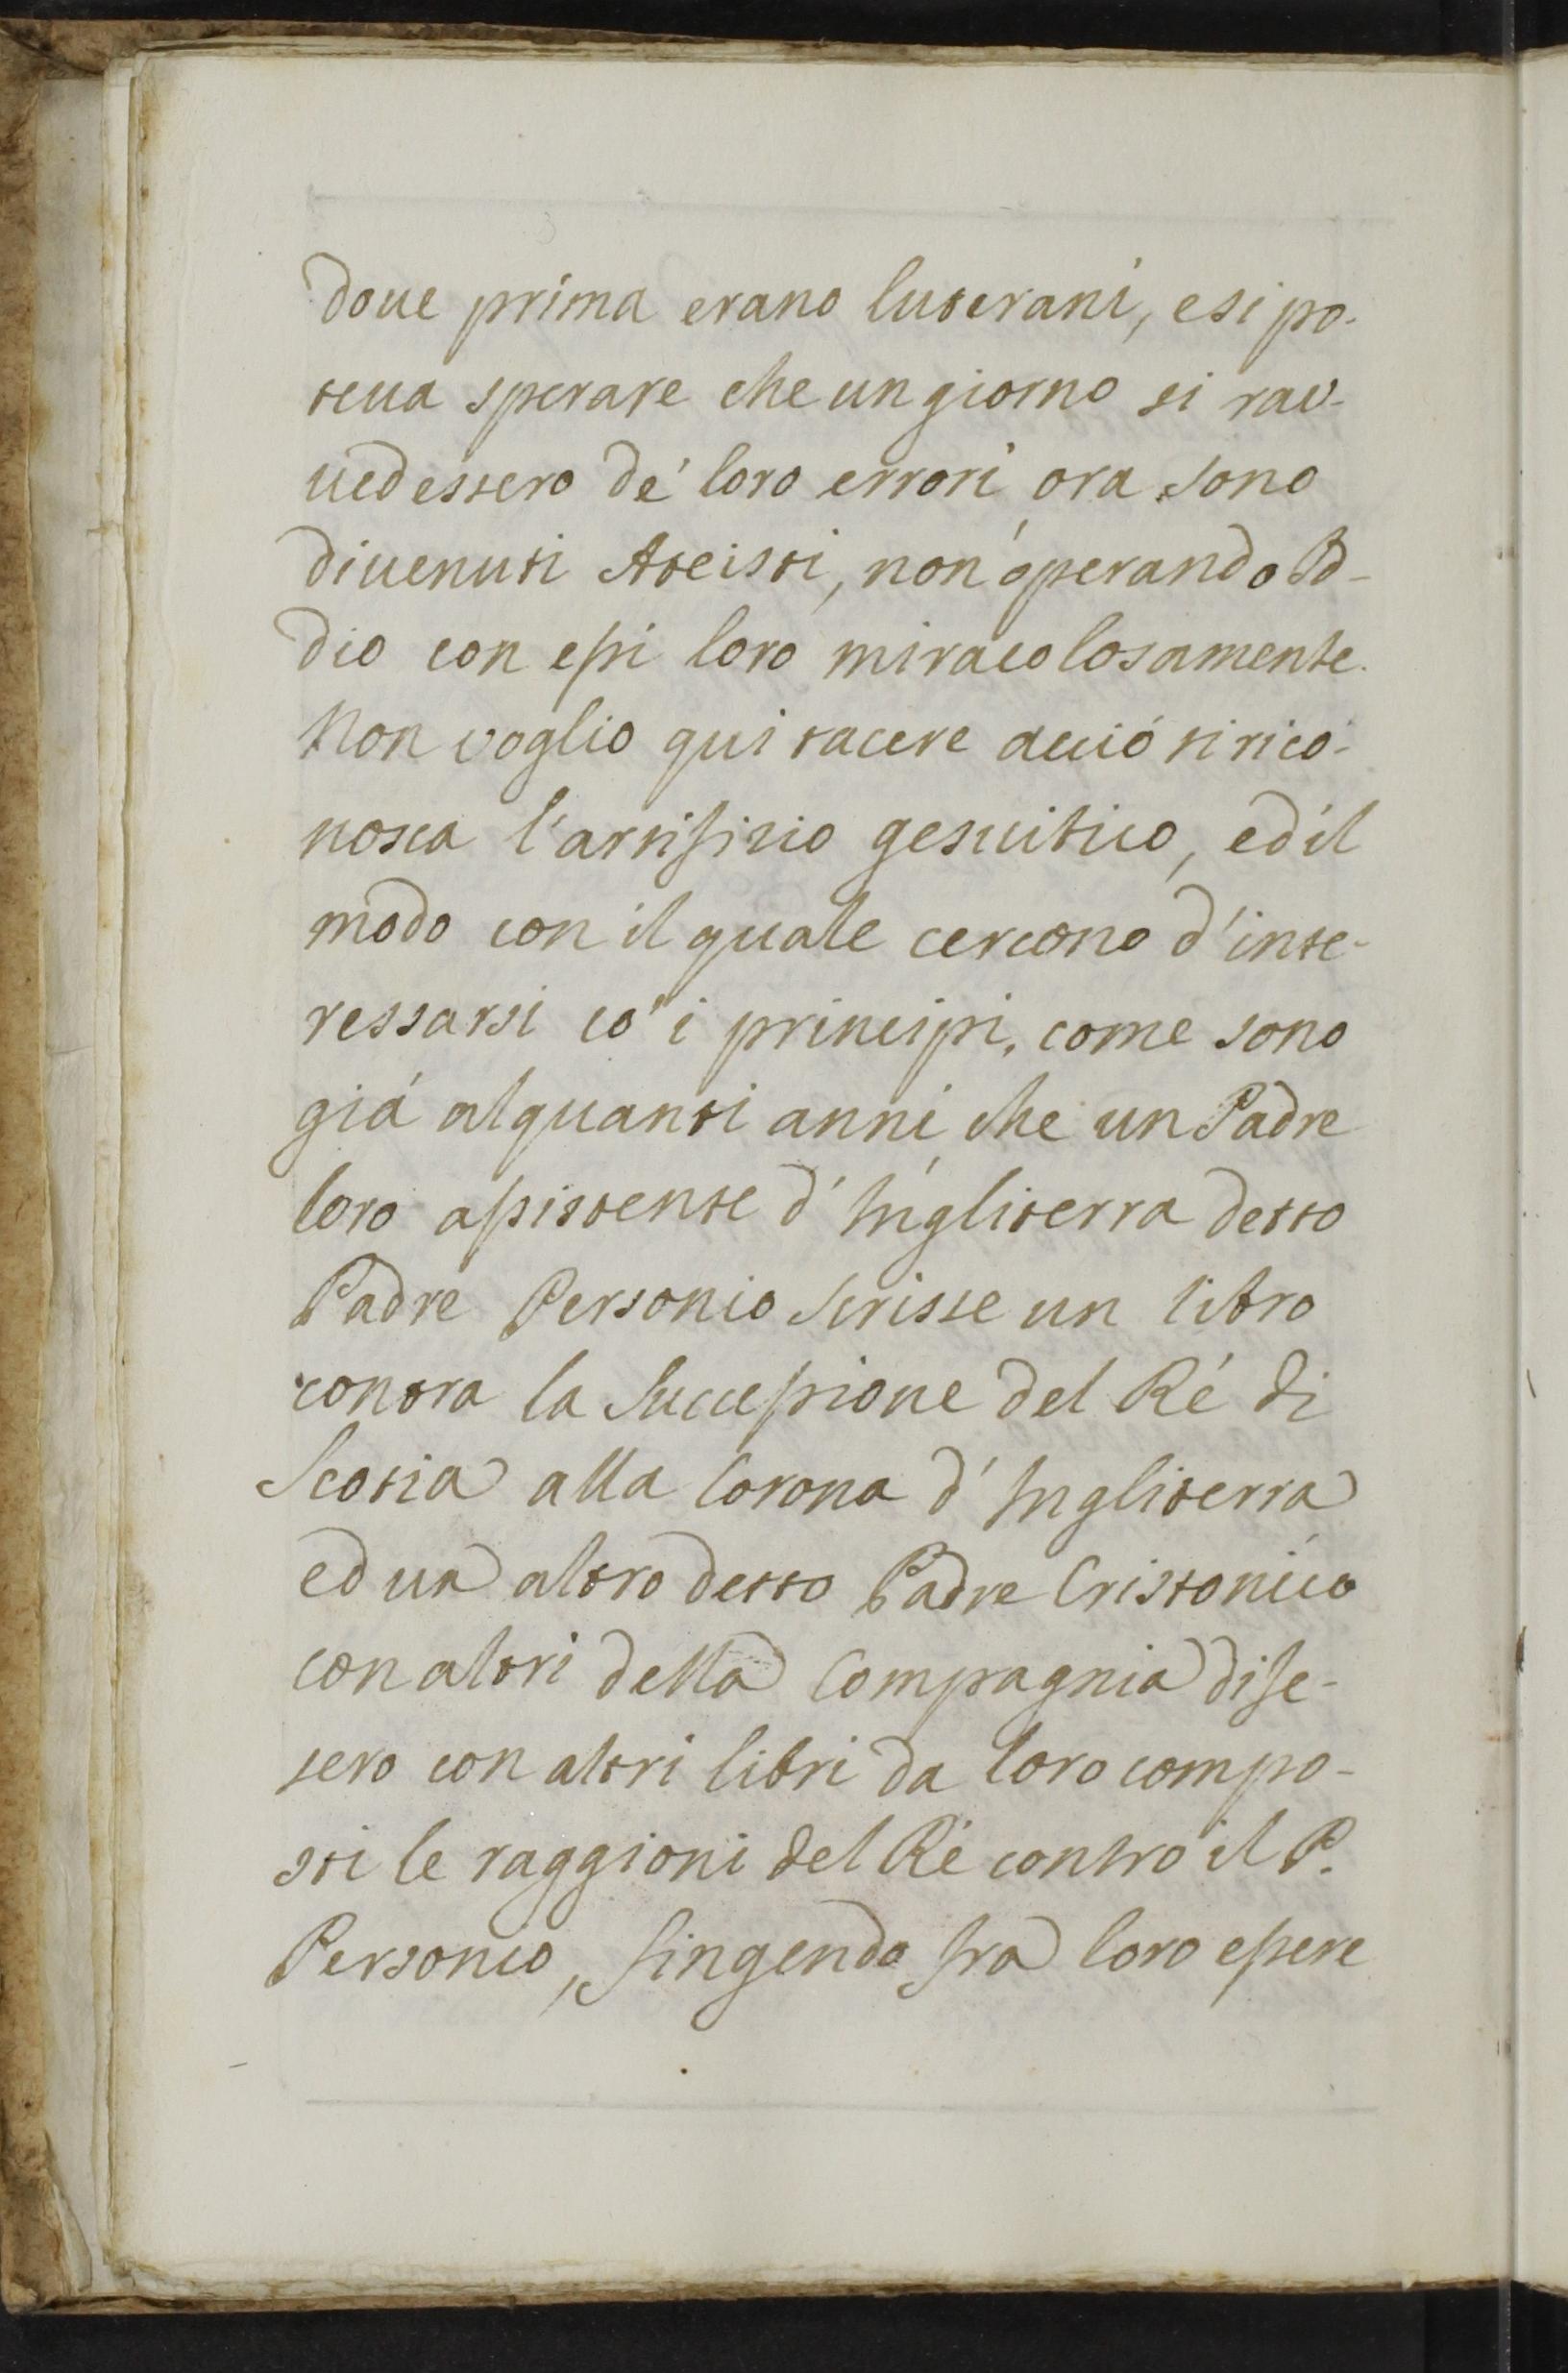 doue prima erano luterani, e si po-
teua sperare che un giorno si rav-
uedessero de' loro errori ora sono
diuenuti Ateisti, non operando Id-
dio con essi loro miracolosamente.
Non voglio qui tacere acciò si rico-
nosca l'artifizio gesuitico, ed il
modo con il quale cercono d'inte-
ressarsi co' i principi, come sono
giá alquanti anni che un Padre
loro assistente d'Inghilterra detto
Padre Personio scrisse un libro
contra la Successione del Ré di
Scotia alla Corona d'Ingliterra
ed un altro detto Padre Critonico
con altri della Compagnia dife-
sero con altri libri da loro compo-
sti le raggioni del Ré contro il P.
Personio, fingendo fra loro essere